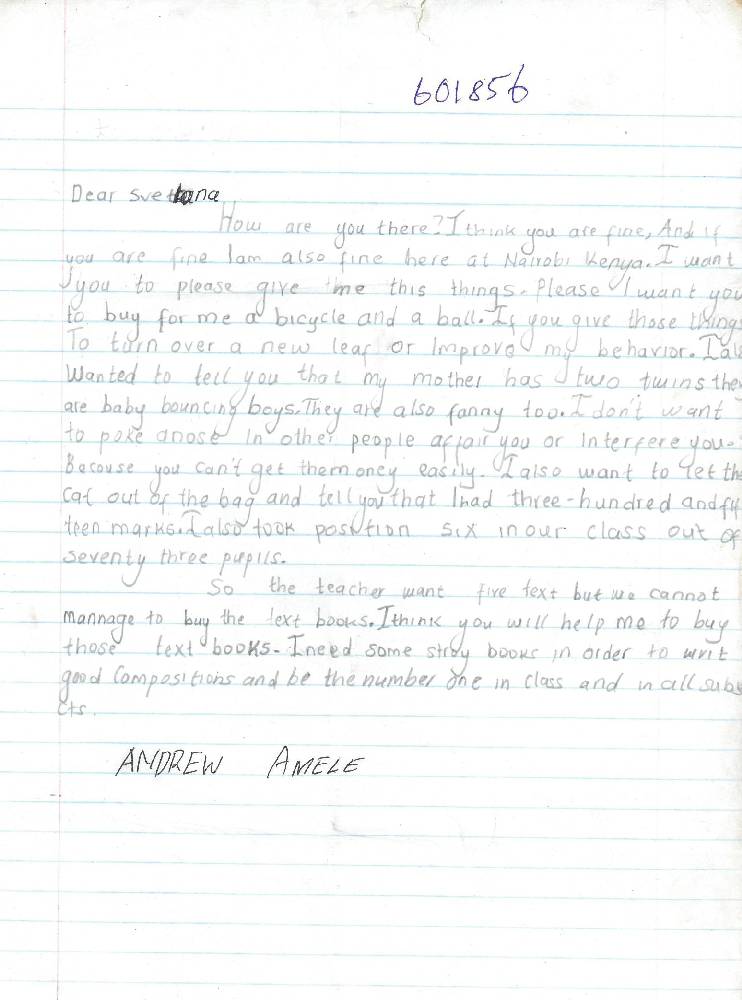 601856
Dear Svetlana
How are you there? I think you are fine, And if
you are fine Iam also fine here at Nairobi Kenya. I want
you to please give me this things. Please I want you
to buy for me a bicycle and a ball. If you give those things
To turn over a new leaf or Improve my behavior. I als
Wanted to tell you that my mother has two twins the
are baby bouncing boys. They are also fanny too. I don't want
to poke anose In other people affair you or Interfere you.
Because you can't get themoney easily. I also want to let the
Cat out of the bag and tell you that Ihad three-hundred and fif
teen marks. I also took position six in our class out of
seventy three pupils.
So the teacher want five text but we cannot
mannage to buy the text books. Ithink you will help me to buy
those text books. Ineed some stroy books in order to writ
good Compositions and be the number one in class and in all subj
cts.
ANDREW AMELE